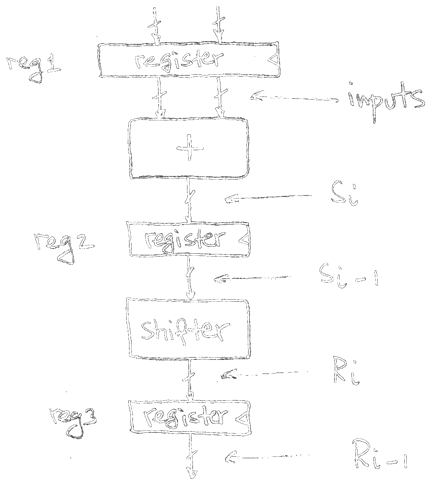 reg1
register
inputs
+
Si
reg2
register
Si-1
Shifter
Ri
reg3
register
Ri-1